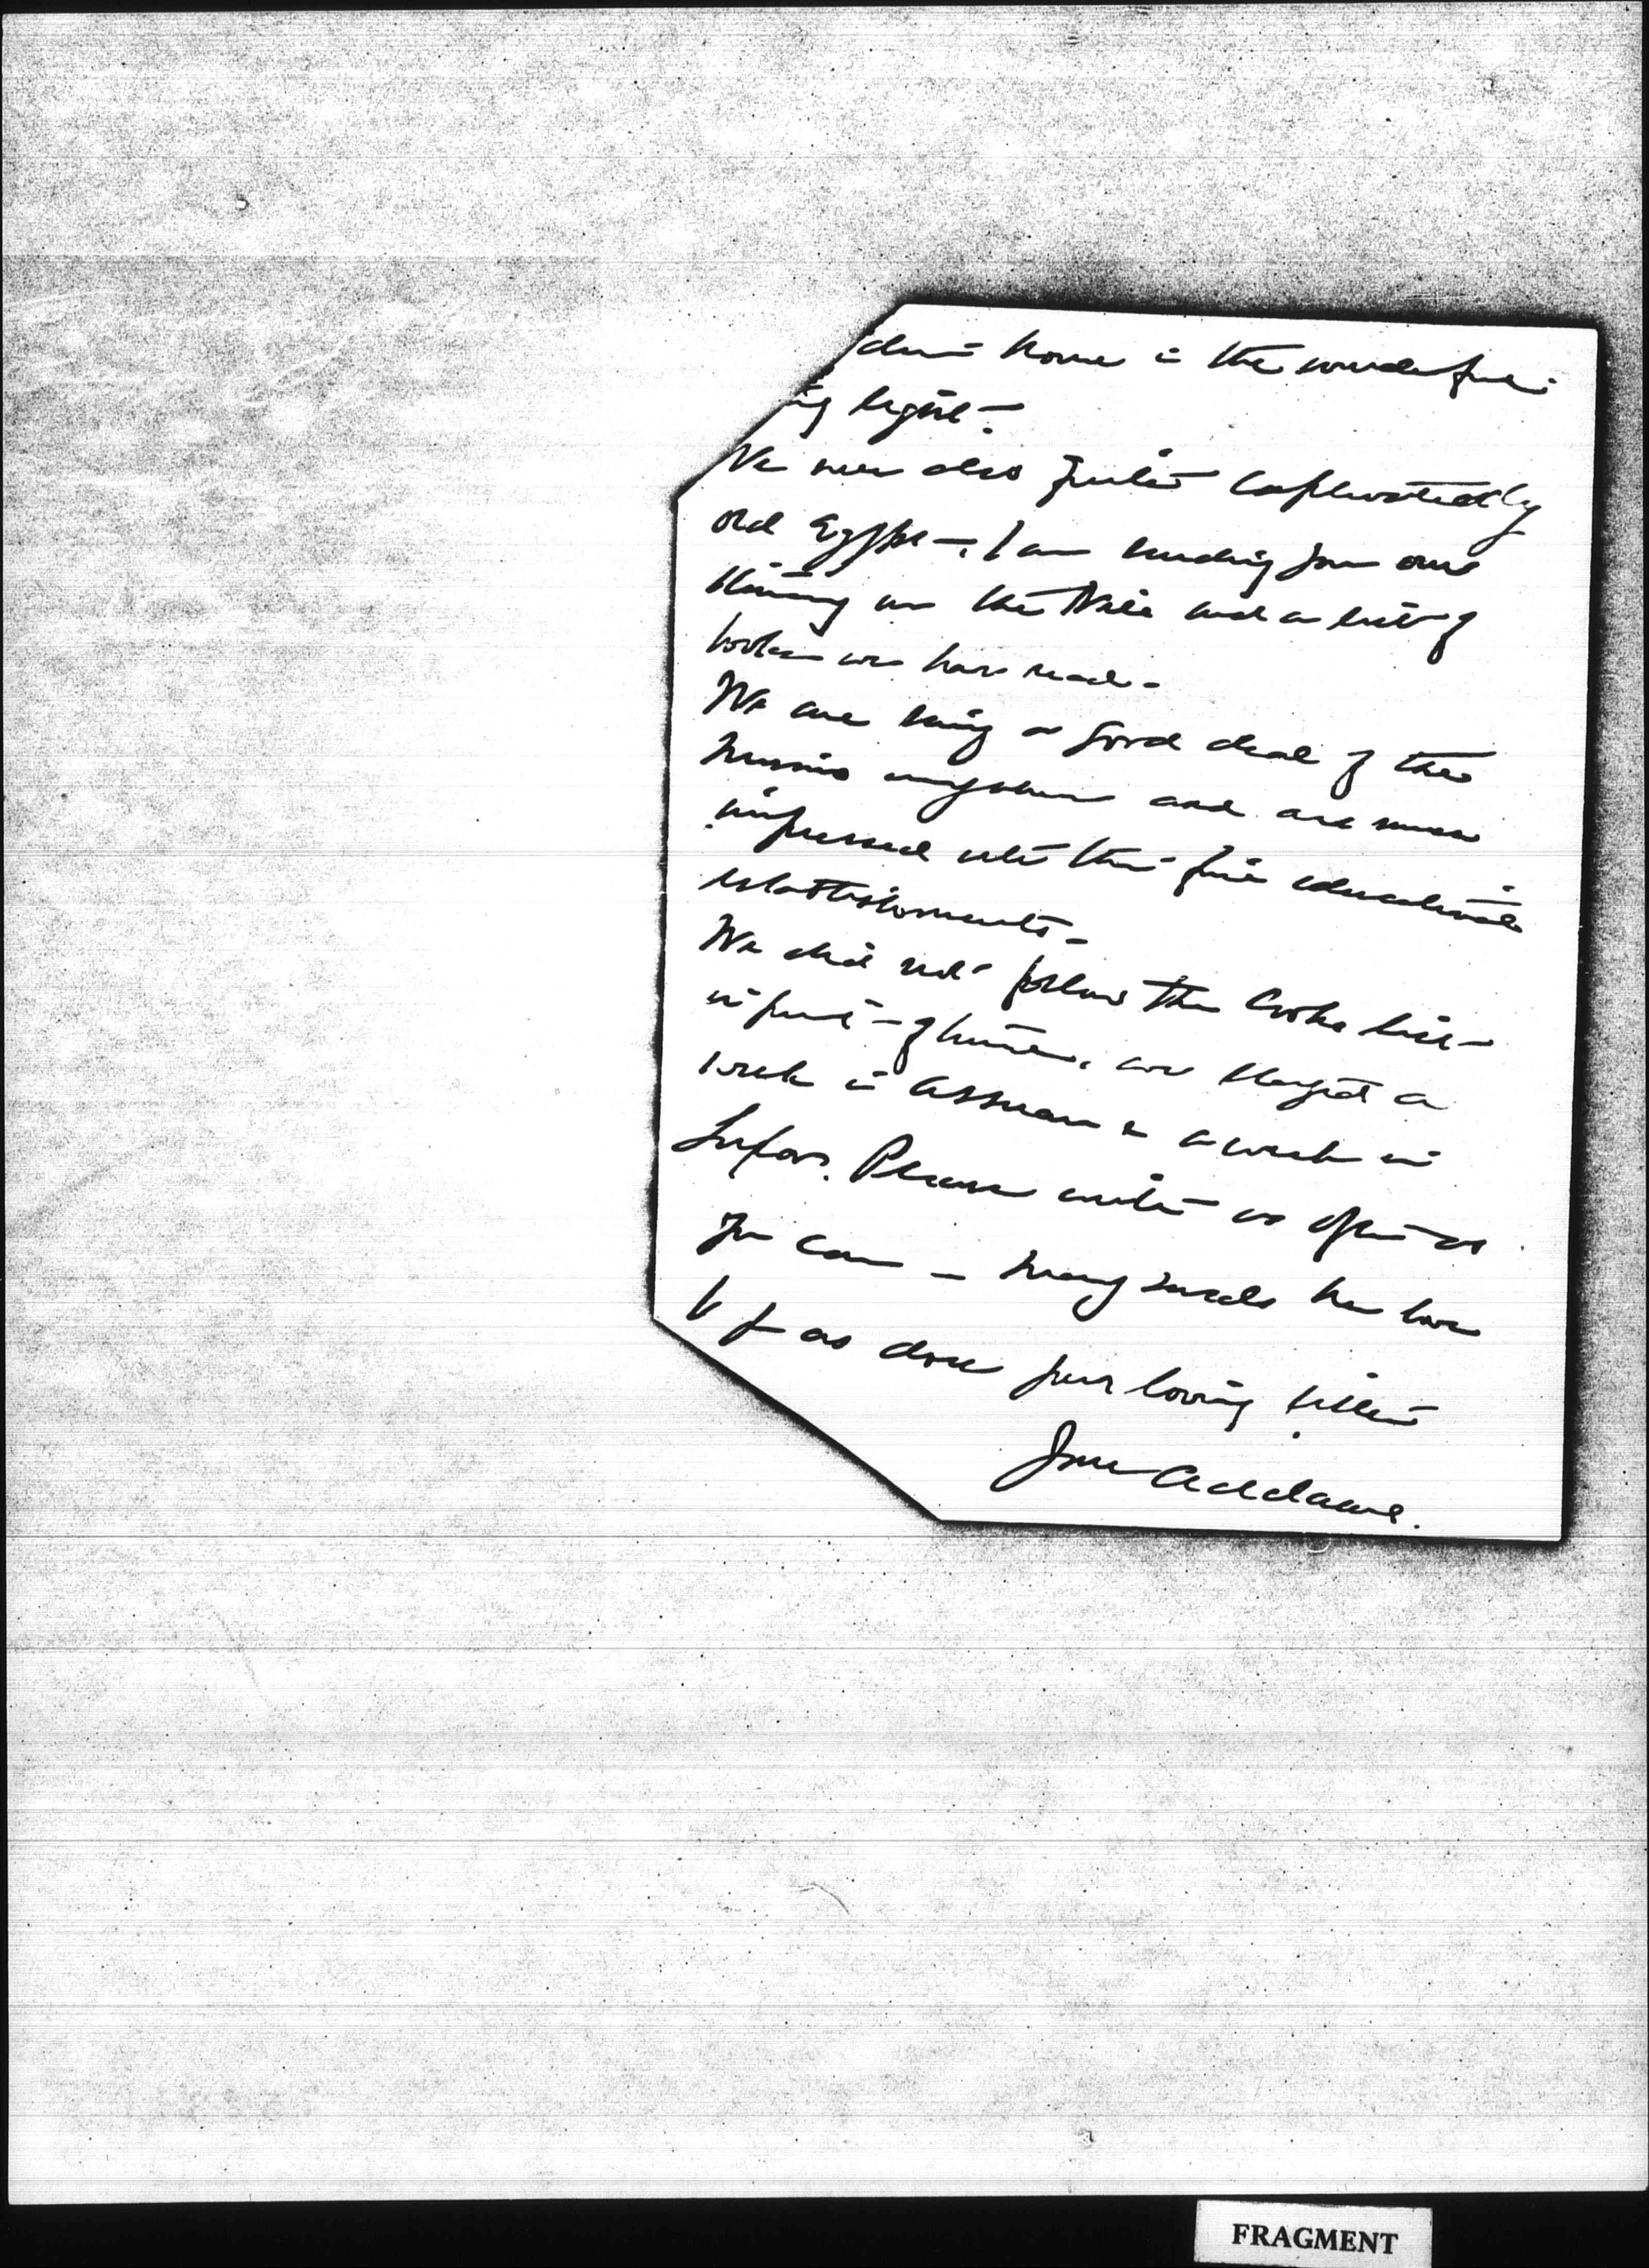 home in the wonderful
light.
We were also quite captivated by
old Egypt. I am sending you one
thing on the Nile and a list of
books we have read.
We are seeing a good deal of the
missions anywhere and are much
impressed with their fine educational
establishments.
We did not follow the Cooks list
in point of time, we stayed a
week in Assuan & a week in
Luxor. Please write as often as
you can — Mary sends her love
to you as does your loving sister
Jane Addams.
FRAGMENT